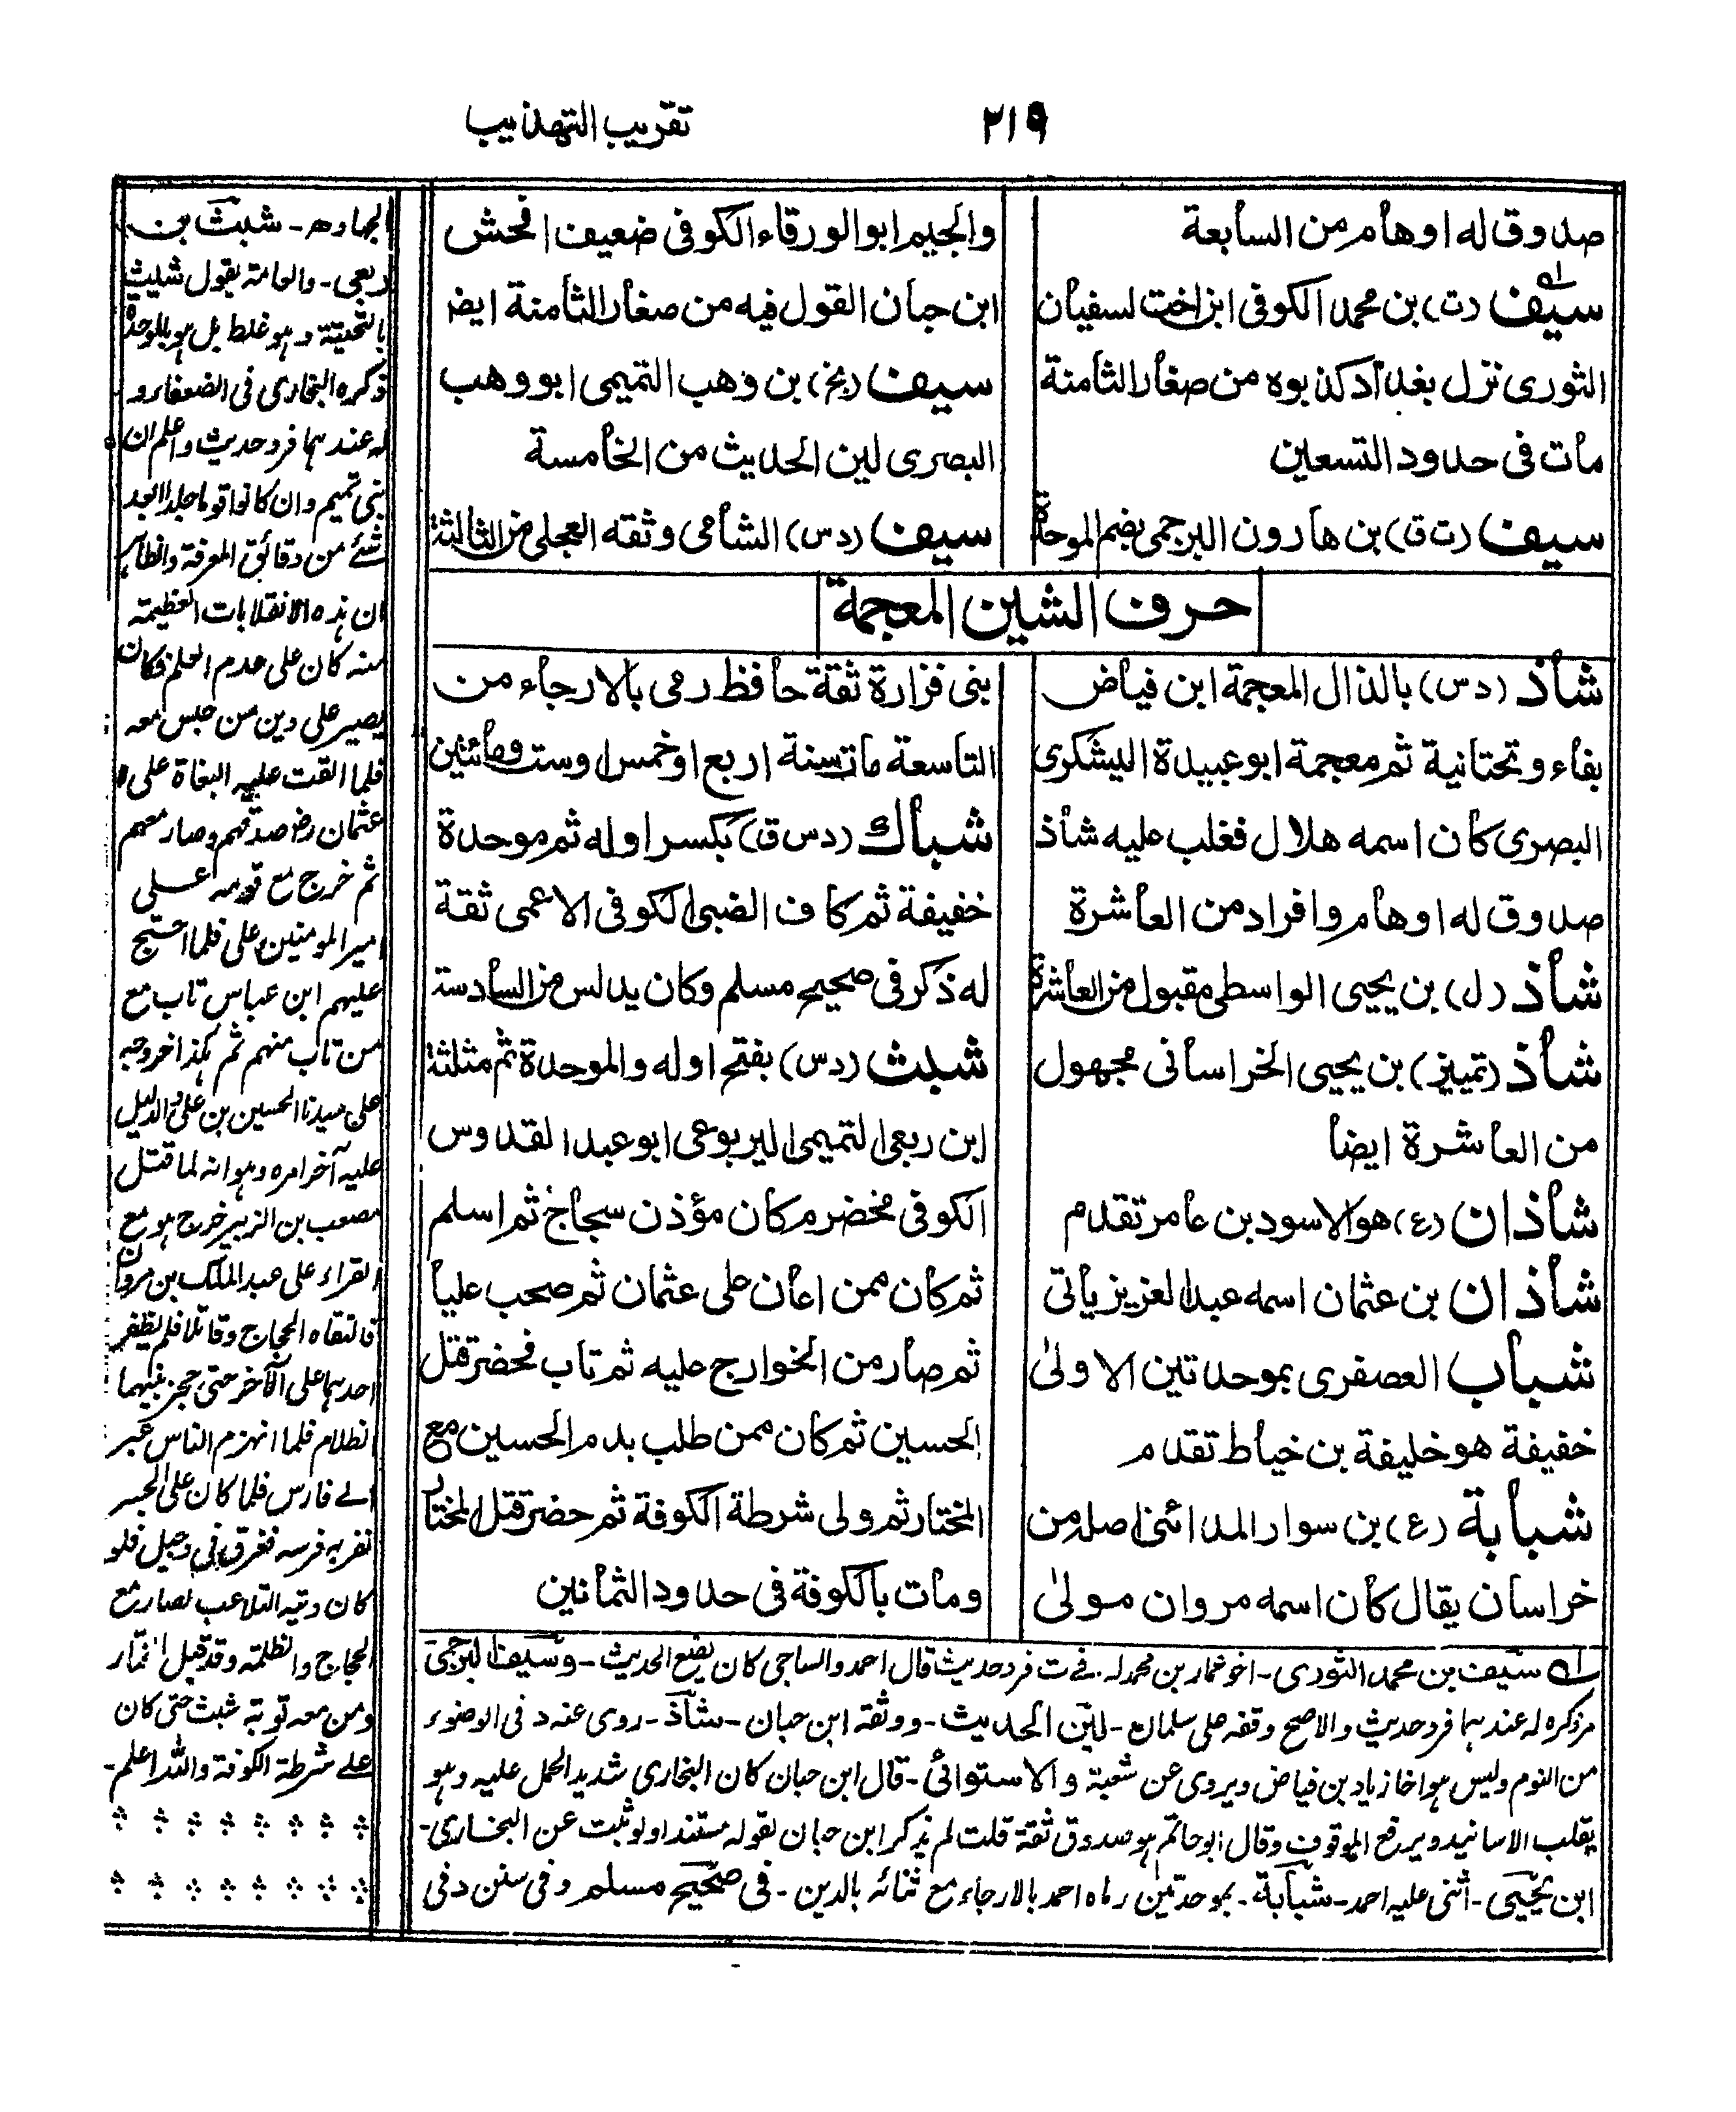 ٢١٩
تقريب التهذيب
صدوق له اوهام من السابعة
سيف (ت) بن محمد الكوفى ابن اخت لسفيان
الثورى نزل بغداد كذبوه من صغار الثامنة
مات فى حدود التسعين
سيف (ت ق) بن هارون البرجمى بضم الموحدة
والجيم ابو الورقاء الكوفى ضعيف افحش
ابن حبان القول فيه من صغار الثامنة ايضا
سيف (بخ) بن وهب التميمى ابو وهب
البصرى لين الحديث من الخامسة
سيف (د س) الشامى وثقه العجلى من الثالثة
حرف الشين المعجمة
شاذ (د س) بالذال المعجمة ابن فياض
بفاء وتحتانية ثم معجمة ابو عبيدة اليشكرى
البصرى كان اسمه هلال فغلب عليه شاذ
صدوق له اوهام وافراد من العاشرة
شاذ (ل) بن يحيى الواسطى مقبول من العاشرة
شاذ (تمييز) بن يحيى الخراسانى مجهول
من العاشرة ايضا
شاذان (ع) هو الاسود بن عامر تقدم
شاذان بن عثمان اسمه عبد العزيز يأتى
شباب العصفرى بموحدتين الاولى
خفيفة هو خليفة بن خياط تقدم
شبابة (ع) بن سوار المدائنى اصله من
خراسان يقال كان اسمه مروان مولى
بنى فزارة ثقة حافظ رمى بالارجاء من
التاسعة مات سنة اربع او خمس او ست ومائتين
شباك (د س ق) بكسر اوله ثم موحدة
خفيفة ثم كاف الضبى الكوفى الاعمى ثقة
له ذكر فى صحيح مسلم وكان يدلس من السادسة
شبث (د س) بفتح اوله والموحدة ثم مثلثة
ابن ربعى التميمى اليربوعى ابو عبد القدوس
الكوفى مخضرم كان مؤذن سجاح ثم اسلم
ثم كان ممن اعان على عثمان ثم صحب عليا
ثم صار من الخوارج عليه ثم تاب فحضر قتل
الحسين ثم كان ممن طلب بدم الحسين مع
المختار ثم ولى شرطة الكوفة ثم حضر قتل المختار
ومات بالكوفة فى حدود الثمانين
له سيف بن محمد الثورى - اخو عمار بن محمد له فى ت فرد حديث قال احمد والساجى كان يضع الحديث - وسيف البرجمى
له عندهما فرد حديث والاصح وقفه على سلمان - لين الحديث - ووثقه ابن حبان - شاذ - روى عنه د فى الوضوء
من النوم وليس هو اخا زياد بن فياض ويروى عن شعبة والاستوائى - قال ابن حبان كان البخارى شديد الحمل عليه وهو
يقلب الاسانيد ويرفع الموقوف وقال ابو حاتم هو صدوق ثقة قلت لم يذكر ابن حبان لقوله مستندا ولو ثبت عن البخارى -
ابن يحيى - اثنى عليه احمد - شبابة - بموحدتين رماه احمد بالارجاء مع ثنائه بالدين - فى صحيح مسلم وفى سنن د فى
الجهاد ه - شبث بن
ربعى - والعامة يقول شليث
بالتحتية وهو غلط بل هو بالموحدة
ذكره البخارى فى الضعفاء و
له عندهما فرد حديث واعلم ان
بنى تميم وان كانوا قوما جلدا ابعد
شئ من دقائق المعرفة والظاهر
ان هذه الانقلابات العظيمة
منه كان على عدم العلم فكان
يصير على دين من حبس معه
فلما القت عليه البغاة على
عثمان رض صدقهم وصار معهم
ثم خرج مع قومه على
امير المومنين على فلما احتج
عليهم ابن عباس تاب مع
من تاب منهم ثم هكذا خروجه
على سيدنا الحسين بن على والدليل
عليه آخر امره وهو انه لما قتل
مصعب بن الزبير خرج هو مع
القراء على عبد الملك بن مروان
فالتقاه الحجاج وقاتلا فلم يظفر
احدهما على الآخر حتى حجز بينهما
الظلام فلما انهزم الناس عبر
الى فارس فلما كان على الجسر
نفر به فرسه فغرق فى دجيل فلو
كان دينه التلاعب لصار مع
الحجاج والظلمة وقد قيل
ومن معه توبة شبث حتى كان
على شرطة الكوفة والله اعلم -